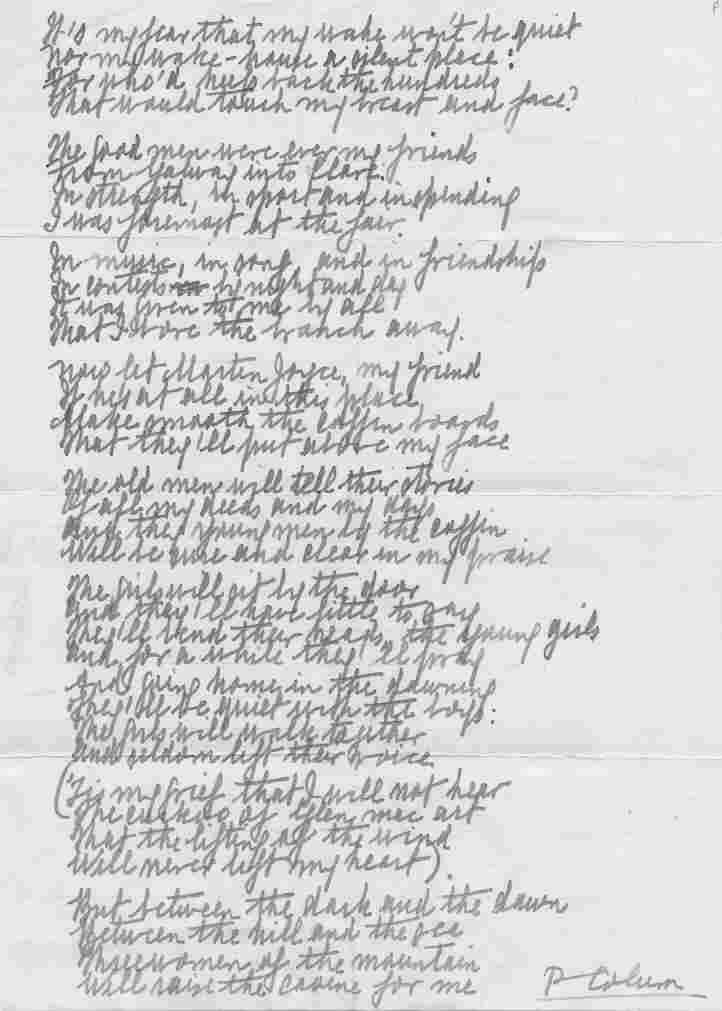 It's my fear that my wake won't be quiet
Nor my wake-house a silent place:
For who'd keep back the hundreds
That would touch my breast and face?
The good men were ever my friends
From Galway into Clare.
In strength, in sport and in spending
I was foremost at the fair.
In music, in song, and in friendship
In contests by night and day
It was given to me by all
That I bore the branch away.
Now let Martin Joyce, my friend
If he's at all in this place,
Make smooth the coffin boards
That they'll put above my face
The old men will tell their stories
Of all my deeds and my days
And the young men by the coffin
Will be wise and clear in my praise
The girls will sit by the door
And they'll have little to say
They'll bend their heads, the young girls
And for a while they'll pray
And going home in the dawning
They'll be quiet with the boys:
The girls will walk together
And seldom lift their voice
('Tis my grief that I will not hear
The cuckoo of Glen mac art
That the lifting of the wind
Will never lift my heart).
But between the dark and the dawn
Between the hill and the sea
Three women of the mountain
Will raise the caoine for me
P Colum